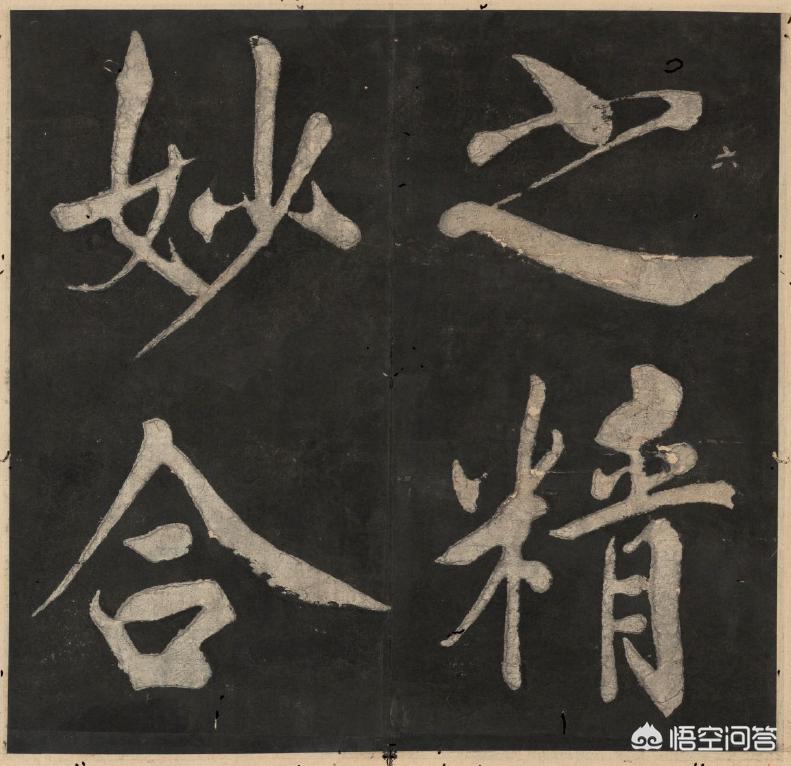 之精
妙合
六
悟空问答